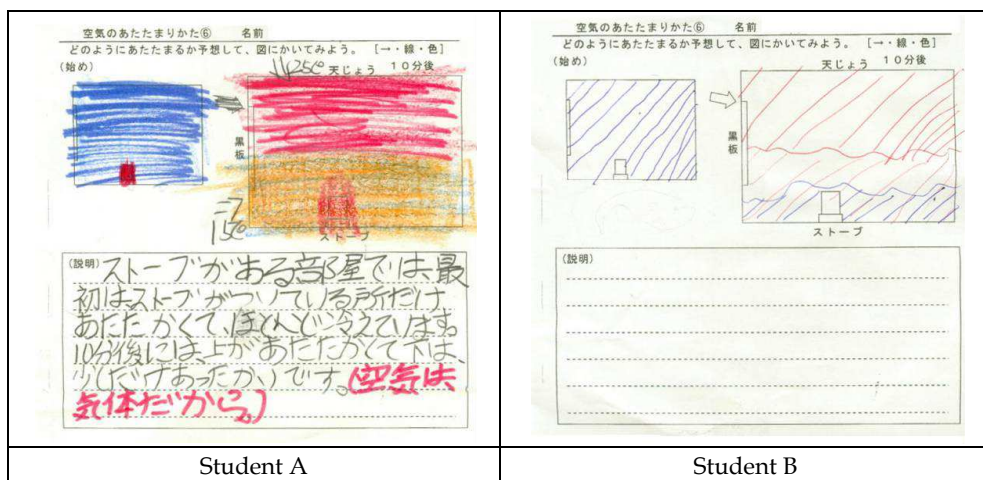 空気のあたたまりかた⑥ 名前
どのようにあたたまるか予想して、図にかいてみよう。 [→・線・色]
(始め)
25℃ 天じょう 10分後
黒板
15℃
ストーブ
(説明) ストーブがある部屋では、最
初はストーブがついている所だけ
あたたかくて、ほとんど冷えています。
10分後には、上があたたかくて下は、
少しだけあったかいです。(空気は、
気体だから。)
Student A
空気のあたたまりかた⑥ 名前
どのようにあたたまるか予想して、図にかいてみよう。 [→・線・色]
(始め)
天じょう 10分後
黒板
ストーブ
(説明)
Student B